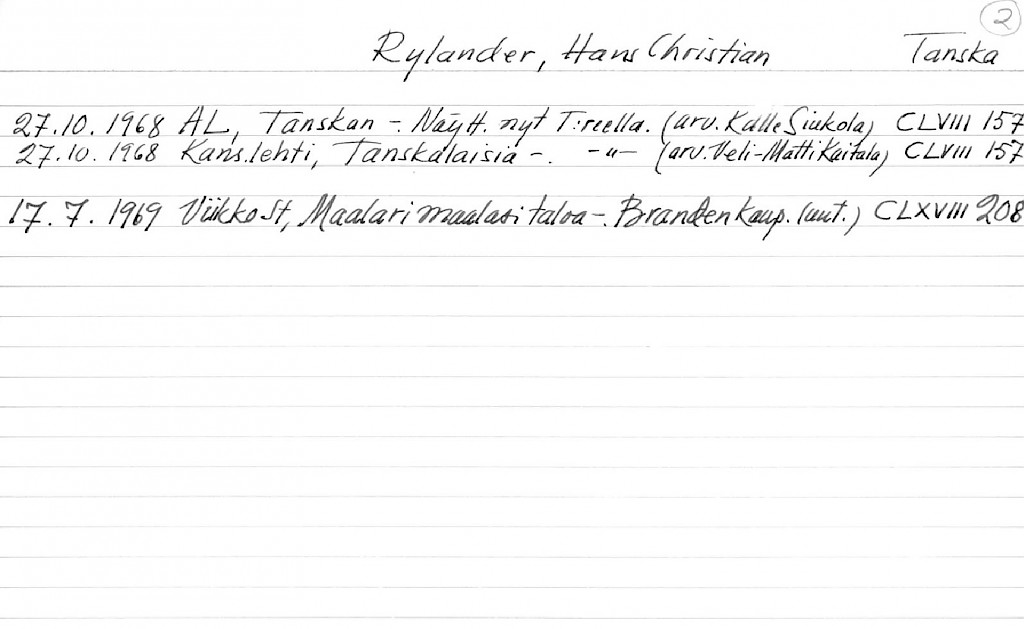 2
Rylander, Hans Christian Tanska
27.10.1968 AL, Tanskan -. Näytt. nyt T:reella. (arv. Kalle Siukola) CLVIII 157
27.10.1968 Kans.lehti, Tanskalaisia -. -"- (arv. Veli-Matti Kaitala) CLVIII 157
17.7.1969 ViikkoSt, Maalari maalasi taloa -. Branden kaup. (uut.) CLXVIII 208